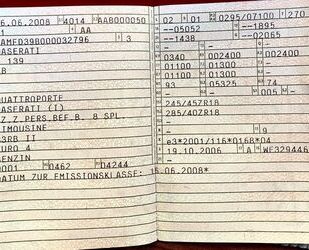 6.06.2008 4014 AAB000050
1 AA
AMFD39B000032796 3
ASERATI
139
B
QUATTROPORTE
ASERATI (I)
Z.Z.PERS.BEF.B. 8 SPL.
IMOUSINE
3RB II
URO 4
ENZIN
0001 0462 04244
DATUM ZUR EMISSIONSKLASSE: 15.06.2008*
02 01 0295/07100 270
--05052 --1895
--1438 --02065
0340 002400 002400
01100 01300
01100 01300
93 05325 74
005 -
245/45ZR18
285/40ZR18
9
e3*2001/116*0168*04
19.10.2006 A WE329446